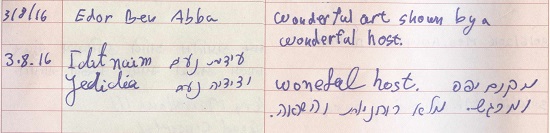 3/8/16 Edor Ben Abba wonderful art shown by a
wonderful host.
3.8.16 Idit naim עידית נעים
Yedidia וידידיה נעים wonefal host. מקום יפה
ומרגש. מלא רוחניות והשראה.